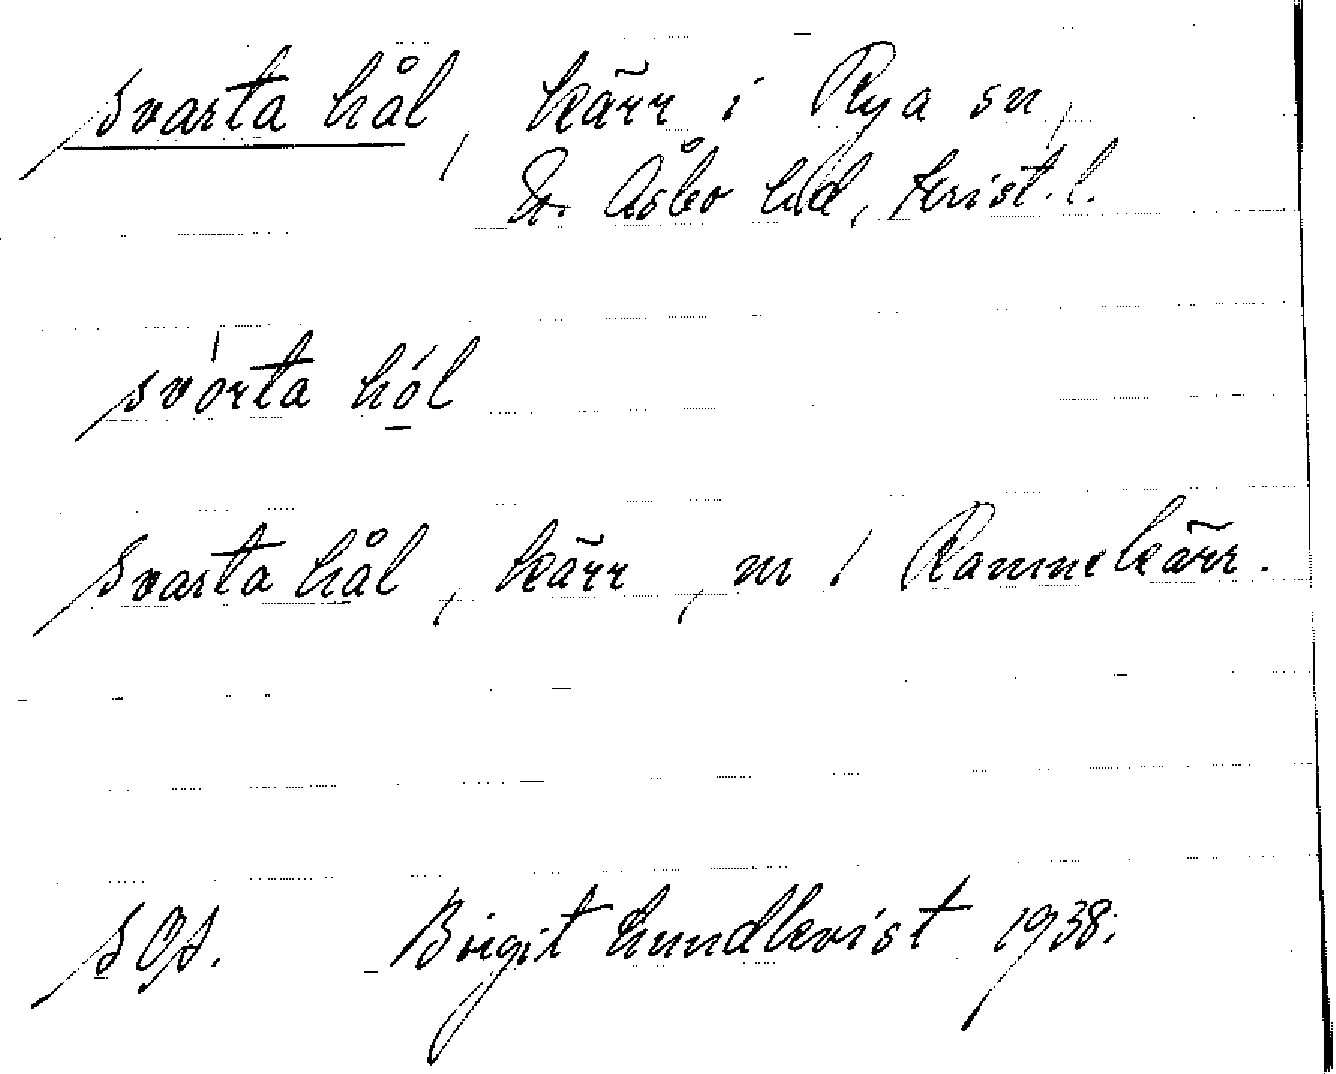 Svarta hål, kärr i Rya sn,
Ö. Åsbo hd, Krist. l.
svorta hól
Svarta hål, kärr, nr 1 Rammekärr.
Birgit Lundkvist 1938.